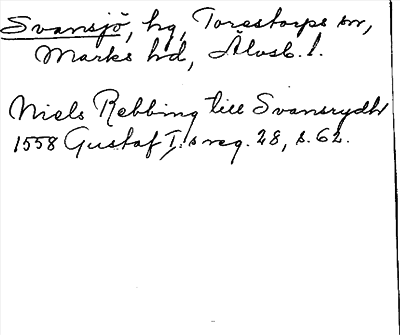 Svansjö, hg, Torestorps sn,
Marks hd, Älvsb. l.
Niels Rebbing till Svansrydh
1558 Gustaf I:s reg. 28, s. 62.